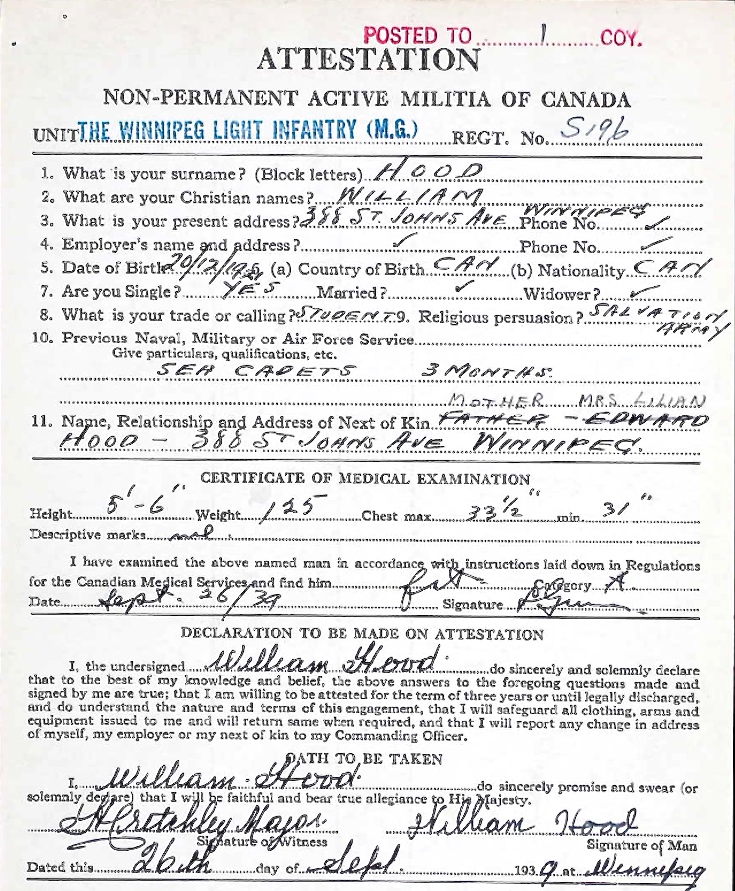 POSTED TO 1 COY.
ATTESTATION
NON-PERMANENT ACTIVE MILITIA OF CANADA
UNIT THE WINNIPEG LIGHT INFANTRY (M.G.) REGT. No. S196
1. What is your surname? (Block letters) HOOD
2. What are your Christian names? WILLIAM
3. What is your present address? 388 ST. JOHNS AVE WINNIPEG Phone No. ✓
4. Employer's name and address? ✓ Phone No. ✓
5. Date of Birth 20/12/19 (a) Country of Birth CAN (b) Nationality CAN
7. Are you Single? YES Married? ✓ Widower? ✓
8. What is your trade or calling? STUDENT 9. Religious persuasion? SALVATION ARMY
10. Previous Naval, Military or Air Force Service
Give particulars, qualifications, etc.
SEA CADETS 3 MONTHS.
MOTHER MRS LILIAN
11. Name, Relationship and Address of Next of Kin FATHER - EDWARD
HOOD - 388 ST JOHNS AVE WINNIPEG.
CERTIFICATE OF MEDICAL EXAMINATION
Height 5'-6" Weight 125 Chest max. 33½" min. 31"
Descriptive marks nil.
I have examined the above named man in accordance with instructions laid down in Regulations
for the Canadian Medical Services and find him fit Category A.
Date Sept. 26/39 Signature
DECLARATION TO BE MADE ON ATTESTATION
I, the undersigned William Hood do sincerely and solemnly declare
that to the best of my knowledge and belief, the above answers to the foregoing questions made and
signed by me are true; that I am willing to be attested for the term of three years or until legally discharged,
and do understand the nature and terms of this engagement, that I will safeguard all clothing, arms and
equipment issued to me and will return same when required, and that I will report any change in address
of myself, my employer or my next of kin to my Commanding Officer.
OATH TO BE TAKEN
I, William Hood do sincerely promise and swear (or
solemnly declare) that I will be faithful and bear true allegiance to His Majesty.
Crotchley Major. William Hood
Signature of Witness Signature of Man
Dated this 26th day of Sept. 1939 at Winnipeg